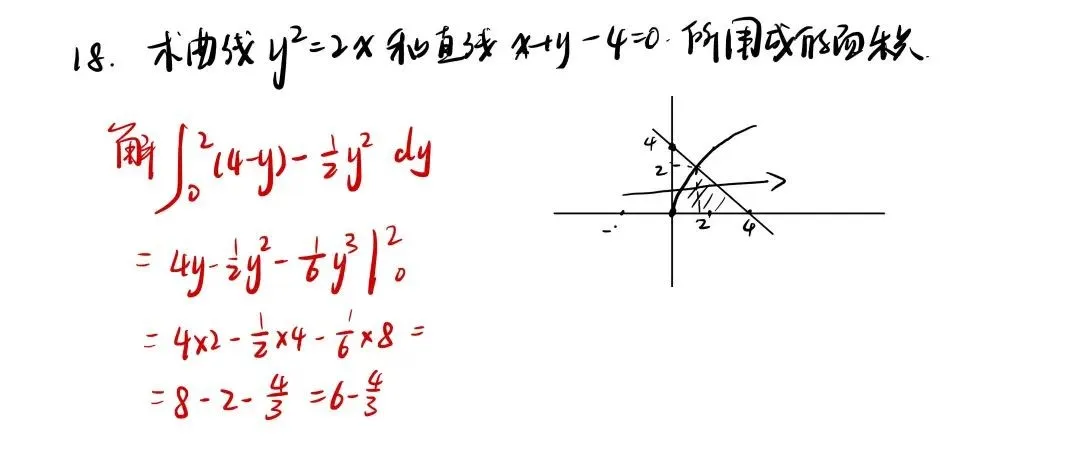 18. 求曲线 y²=2x 和直线 x+y-4=0. 所围成的面积.
解 ∫₀² (4-y) - 1/2 y² dy
= 4y - 1/2 y² - 1/6 y³ |₀²
= 4×2 - 1/2×4 - 1/6×8 =
= 8 - 2 - 4/3 = 6 - 4/3
4
2
2
4